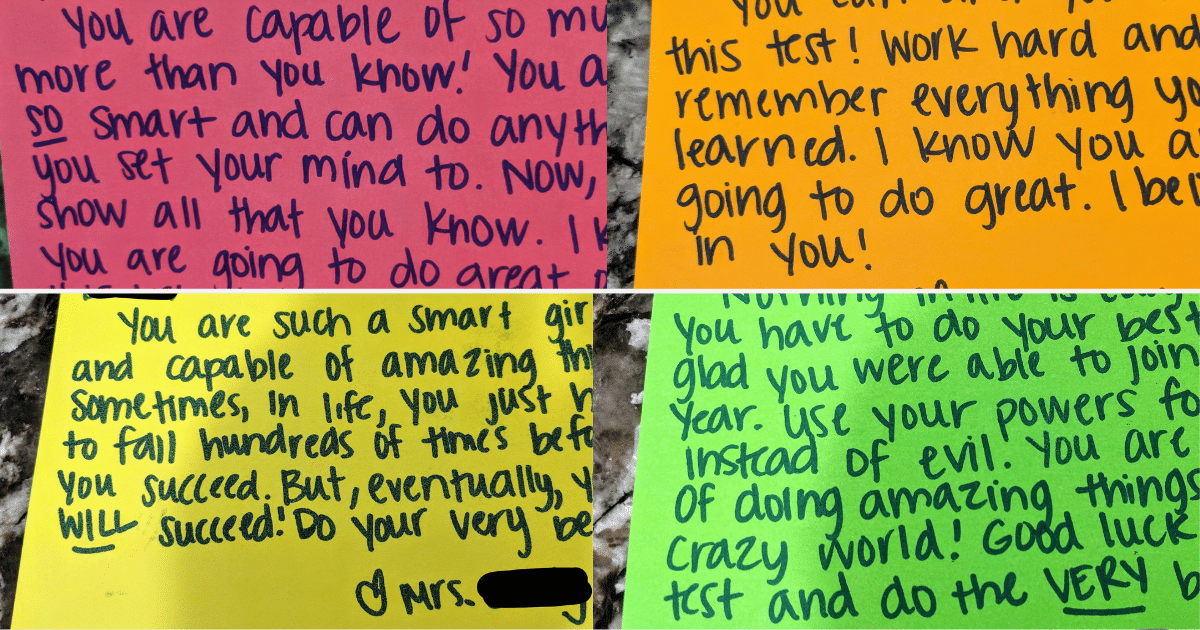 You are capable of so mu
more than you know! You a
so smart and can do anyth
you set your mind to. Now,
show all that you know. I k
you are going to do great
You can
this test! Work hard and
remember everything yo
learned. I know you a
going to do great. I beli
in you!
You are such a smart gir
and capable of amazing thi
Sometimes, in life, you just h
to fail hundreds of times befo
you succeed. But, eventually, y
WILL succeed! Do your very be
♡ Mrs.
Nothing in life is easy
you have to do your best
glad you were able to join
year. Use your powers fo
instead of evil. You are
of doing amazing things
crazy world! Good luck
test and do the VERY b